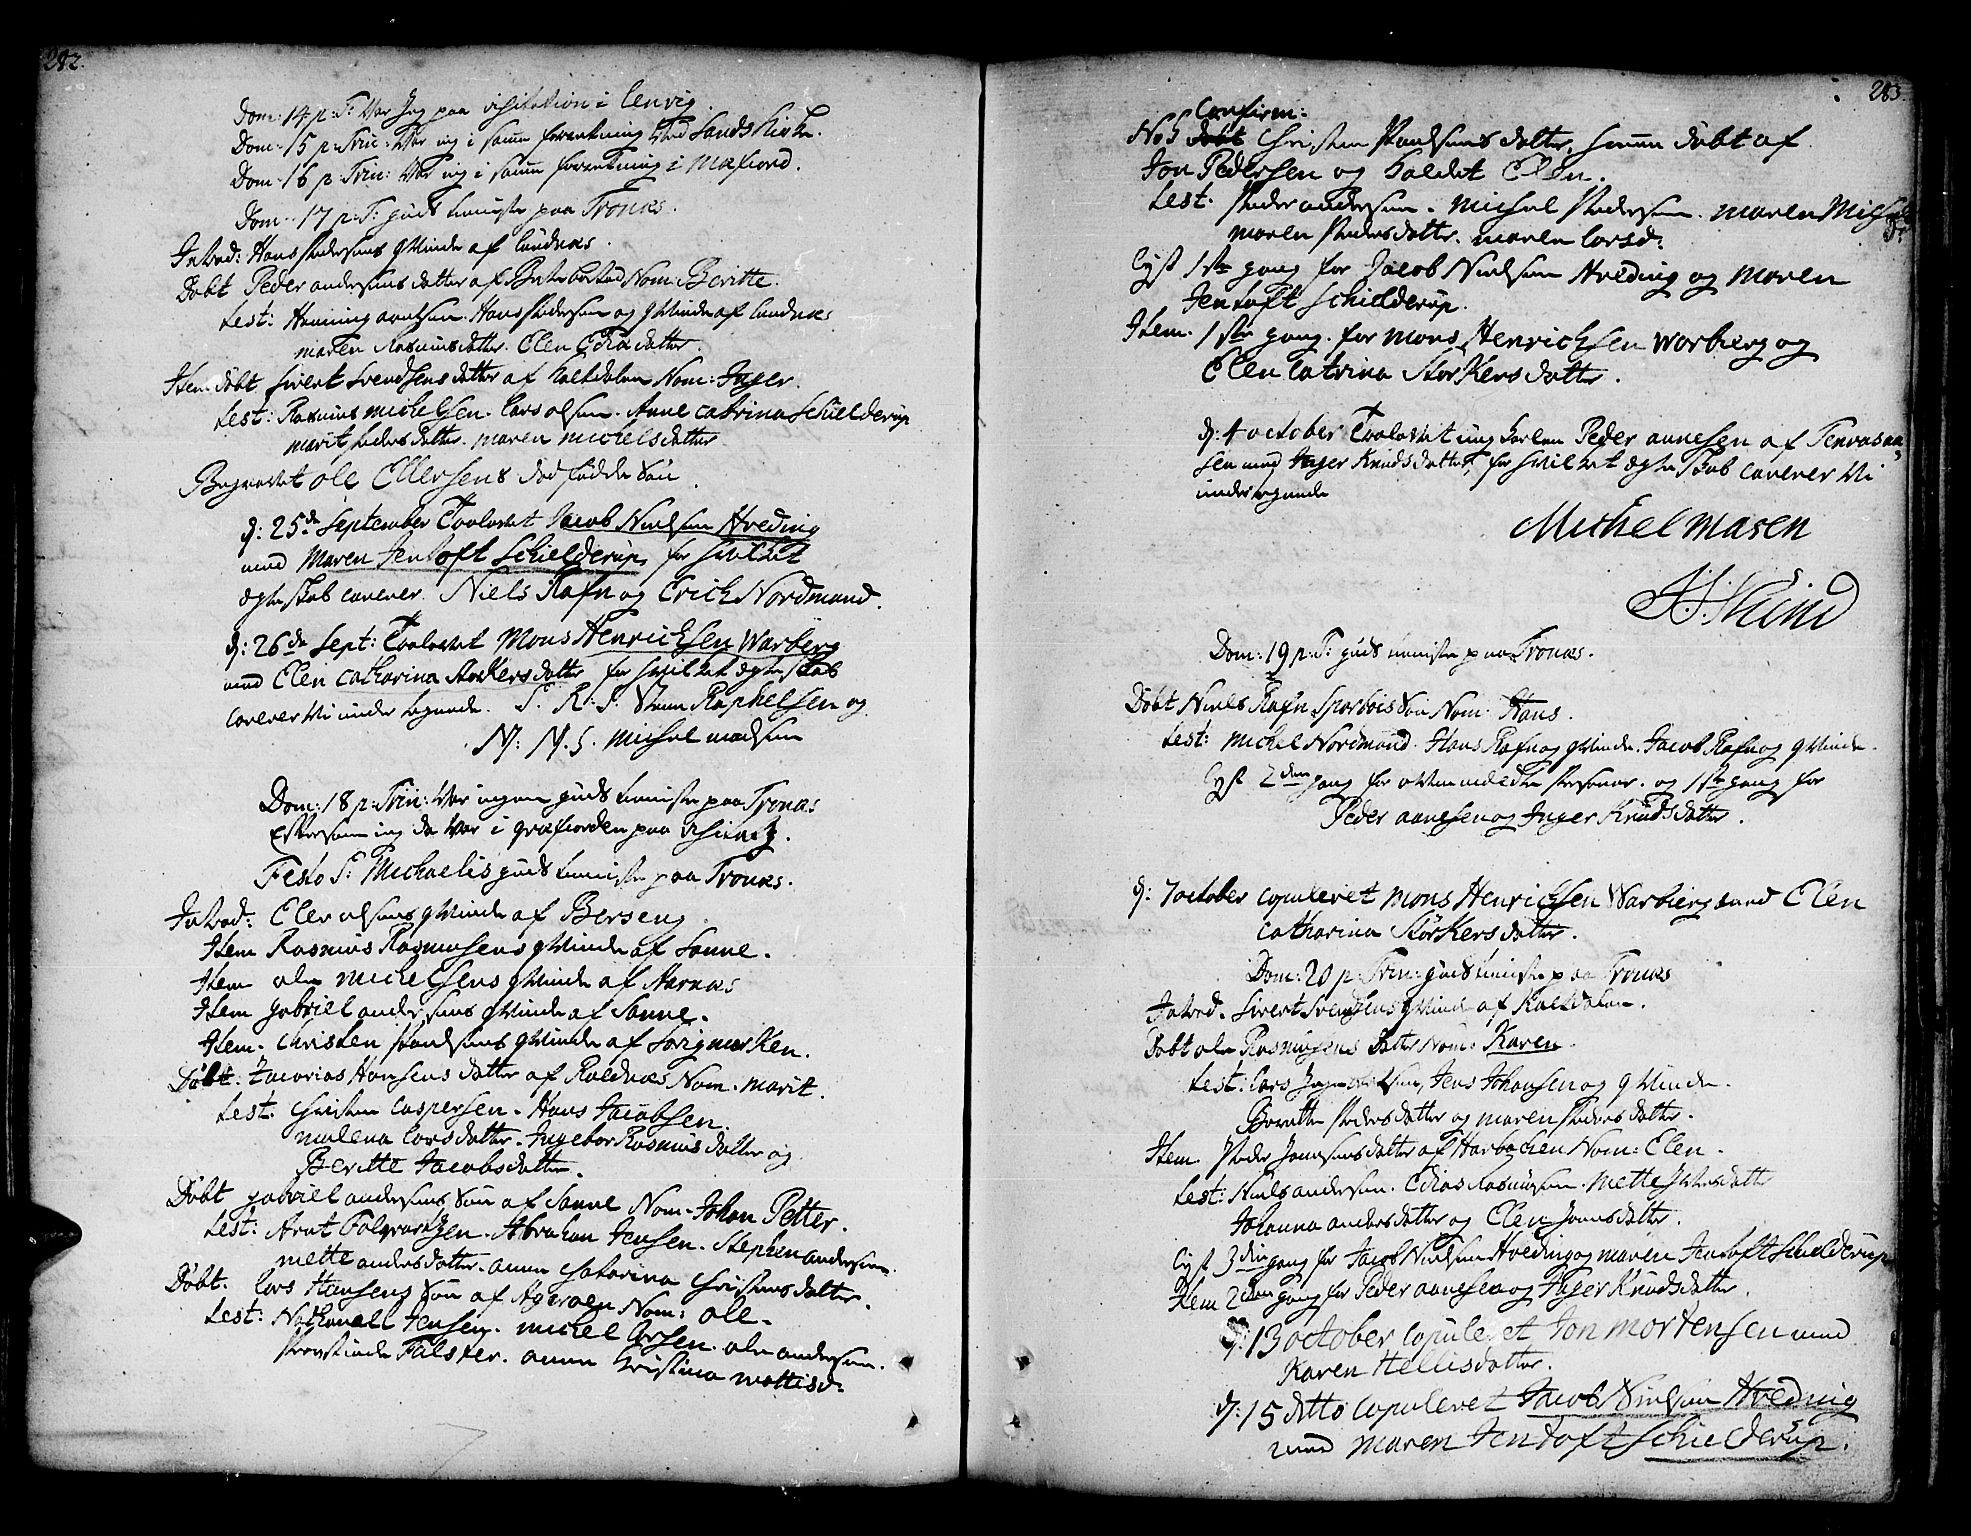 282.
Dom: 14 p: T: Var Jeg paa visitation i Lenvig.
Dom: 15 p: Trin: Var jeg i samme forretning ved Sands Kirke.
Dom: 16 p: Trin: Var jeg i samme forretning i Mafiord.
Dom: 17 p: T: guds tienniste paa Tronæs.
Introd: Hans Pedersens qvinde af Lundnæs.
Döbt Peder andersens datter af Nom: Beritte.
test: Henning arntsen. Hans Pedersen og qvinde af Lundnæs
maren Rasmusdatter. Elen datter.
Item döbt Sivert Svendsens datter af Kaldalen Nom: Inger.
test: Rasmus michelsen. Lars olsen. Anne Catrina Schielderup
marit Pedersdatter. maren michelsdatter
Begravet ole Ellersens död födde Sön.
d: 25de September Troelovet Jacob Nielsen Hveding
med Maren Jentoft Schielderup, for hvilket
ægteskab caverer Niels Rafn og Erich Nordmand.
d: 26de Sept: Troelovet Mons Henrichsen Warberg
med Elen Catharina Storkersdatter for hvilket ægteskab
caverer Vi under tegnende. S. R: S. Steen Raphelsen og
N: M. S. Michel madsen
Dom: 18 p: Trin: Var ingen guds tienniste paa Tronæs
Eftersom jeg da var i græfiorden paa visitatz.
Festo S: Michaelis guds tienniste paa Tronæs.
Introd: Eler olsens qvinde af Berseng.
Item Rasmus Rasmusens qvinde af Sanne.
Item ole Michelsens qvinde af Aarnæs
Item gabriel andersens qvinde af Sanne.
Item. Christen Paulsens qvinde af Sörigmarken.
Döbt. Zacarias Hansens datter af Roldnæs Nom. marit.
test: Christen Caspersen. Hans Jacobsen.
malena Larsdatter. Ingebor Rasmusdatter og
Beritte Jacobsdatter.
Döbt gabriel andersens Sön af Sanne Nom. Johan Petter.
test: Arnt Folqvartsen. Abraham Jensen. Stephen andersen.
mette andersdatter. anne Catarina Christensdatter.
Döbt. Lars Hansens Sön af Ageröen Nom: ole.
test: Nathanall Jensen. michel Larsen. ole andersen.
Provstinde Falster. anne Christina mattisd:
283.
Confirm:
No 5 döbt Christen Paulsens datter, hiemme döbt af
Jon Pedersen og kaldet Elen.
test. Peder andersen. michel Pedersen. maren Michels
Dr
maren Pedersdatter. maren Larsd:
Lyst 1ste gang for Jacob Nielsen Hveding og Maren
Jentoft Schielderup.
Item. 1ste gang. for Mons Henrichsen Warberg og
Elen Catrina Storkersdatter.
d: 4 october Troelovet ung karlen Peder aanesen af Tenvasaa
sen med Inger Knudsdatter, for hvilket ægteskab caverer Vi
undertegnede
Michel Masen
Dom: 19 p: T: guds tienniste paa Tronæs.
Döbt Niels Rafn Sparbois Sön Nom: Hans.
test: Michel Nordmand. Hans Rafn og qvinde. Jacob Rafn og qvinde.
Lyst 2den gang for ovenmeldte Personer. og 1ste gang for
Peder aanesen og Inger Knudsdatter.
d: 7 october copuleret Mons Henrichsen Warberg med Elen
Catharina Störkersdatter.
Dom: 20 p: Trin: guds tienniste paa Tronæs
Introd. Sivert Svendsens qvinde af Kaldalen.
Döbt ole Rasmusens datter Nom: Karen.
test: Lars Jens Johansen og qvinde.
Berethe Pedersdatter og maren Pedersdatter.
Item. Peder Jonsens datter af Harbachen Nom: Elen.
test: Niels andersen. Elias Rasmusen. Mette Petersdatter
Johanna andersdatter og Elen Jonsdatter.
Lyst 3die gang for Jacob Nielsen Hveding og maren Jentoft Schielderup
Item 2den gang for Peder aanesen og Inger Knudsdatter.
d: 13 october Copuleret Jon Mortensen med
Karen Hellisdatter.
d: 15 ditto copuleret Jacob Nielsen Hveding
med maren Jentoft Schielderup.